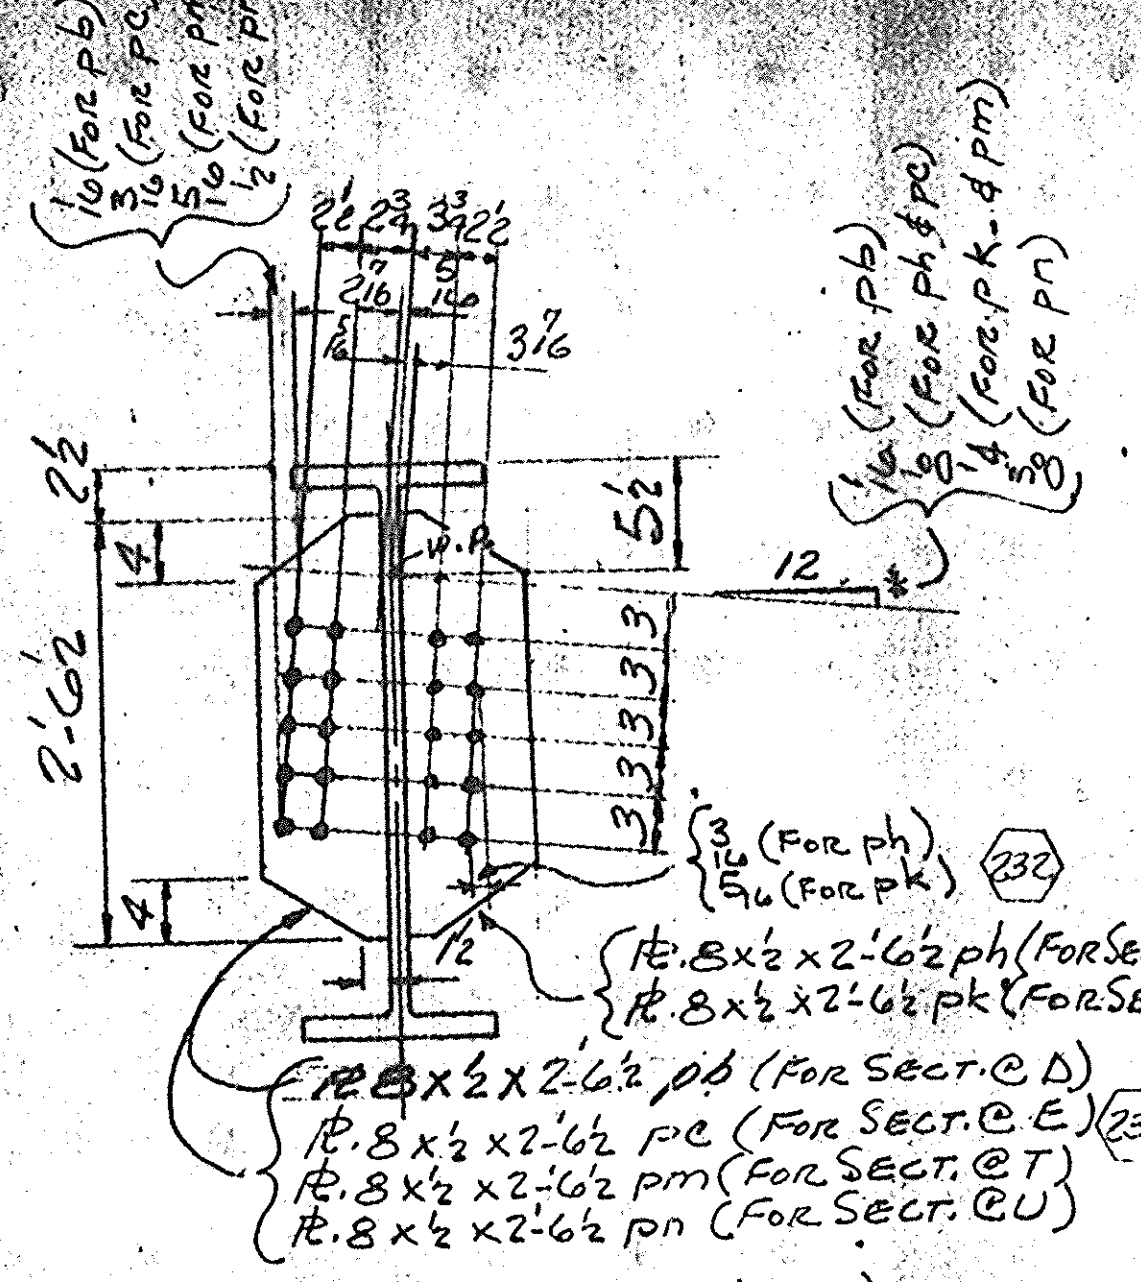 1/16 (FOR pb)
3/16 (FOR pc,
5/16 (FOR pm
1/2 (FOR pn
2 1/2 2 3/4 3 3/4 2 1/2
2 7/16 5/16
3 7/16
1/16 (FOR pb)
1/8 (FOR ph & pc)
1/4 (FOR pk & pm)
5/8 (FOR pn)
2 1/2
5 1/2
4
W.P.
12
*
2'-6 1/2
3 3 3 3 3
3/16 (FOR ph)
5/16 (FOR pk)
232
4
1 1/2
PL. 8 x 1/2 x 2'-6 1/2 ph (FOR SE
PL. 8 x 1/2 x 2'-6 1/2 pk (FOR SE
PL 8 x 1/2 x 2'-6 1/2 pb (FOR SECT. @ D)
PL. 8 x 1/2 x 2'-6 1/2 pc (FOR SECT. @ E)
23
PL. 8 x 1/2 x 2'-6 1/2 pm (FOR SECT. @ T)
PL. 8 x 1/2 x 2'-6 1/2 pn (FOR SECT. @ U)